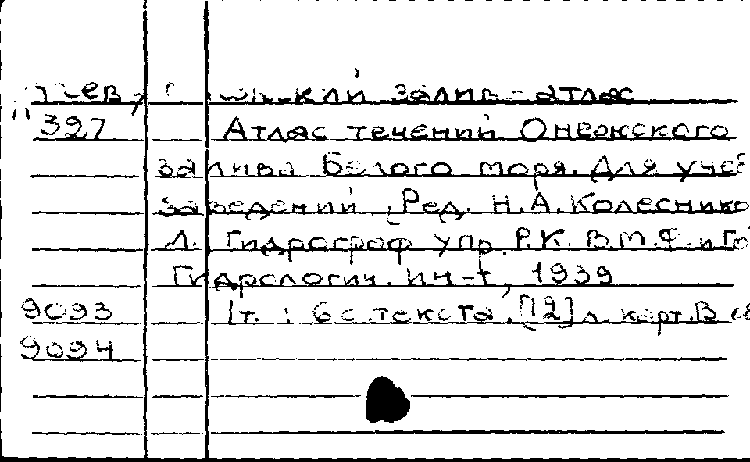 залив - атлас
327 Атлас течений Онежского
залива Белого моря. Для учеб
заведений [Ред. Н.А. Колеснико
Л. Гидрограф упр. Р.К. В.М.Ф. и Го
Гидрологич. ин-т, 1939
9093 1т. : 6 с. текста, [12] л. карт. В
9094